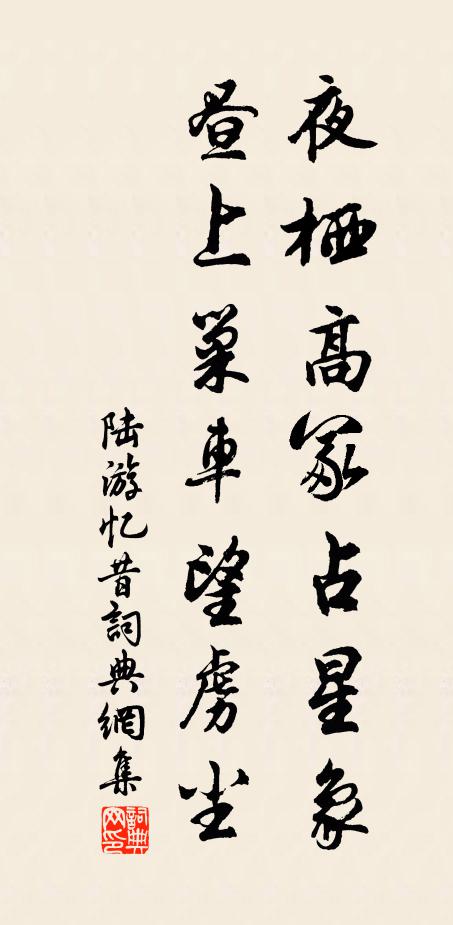 夜栖高冢占星象
昼上巢車望虜尘
陆游忆昔詞典網集
詞典网印